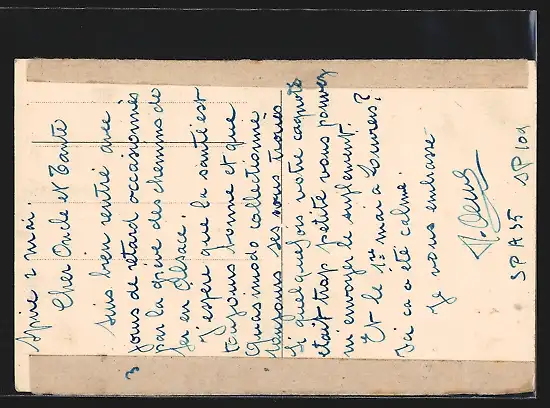 Spire 2 mai.
Cher Oncle et Tante
Suis bien rentré avec
3 jours de retard occasionnés
par la grève des chemins de
fer en Alsace.
J'espère que la santé est
toujours bonne et que
Quasimodo collectionne
toujours ses sous troués
Si quelquefois votre cagnotte
était trop petite vous pouvez
m'envoyer le supplément.
Et le 1er mai à Louviers?
Ici ça a été calme.
Je vous embrasse
SPA 35 SP 109